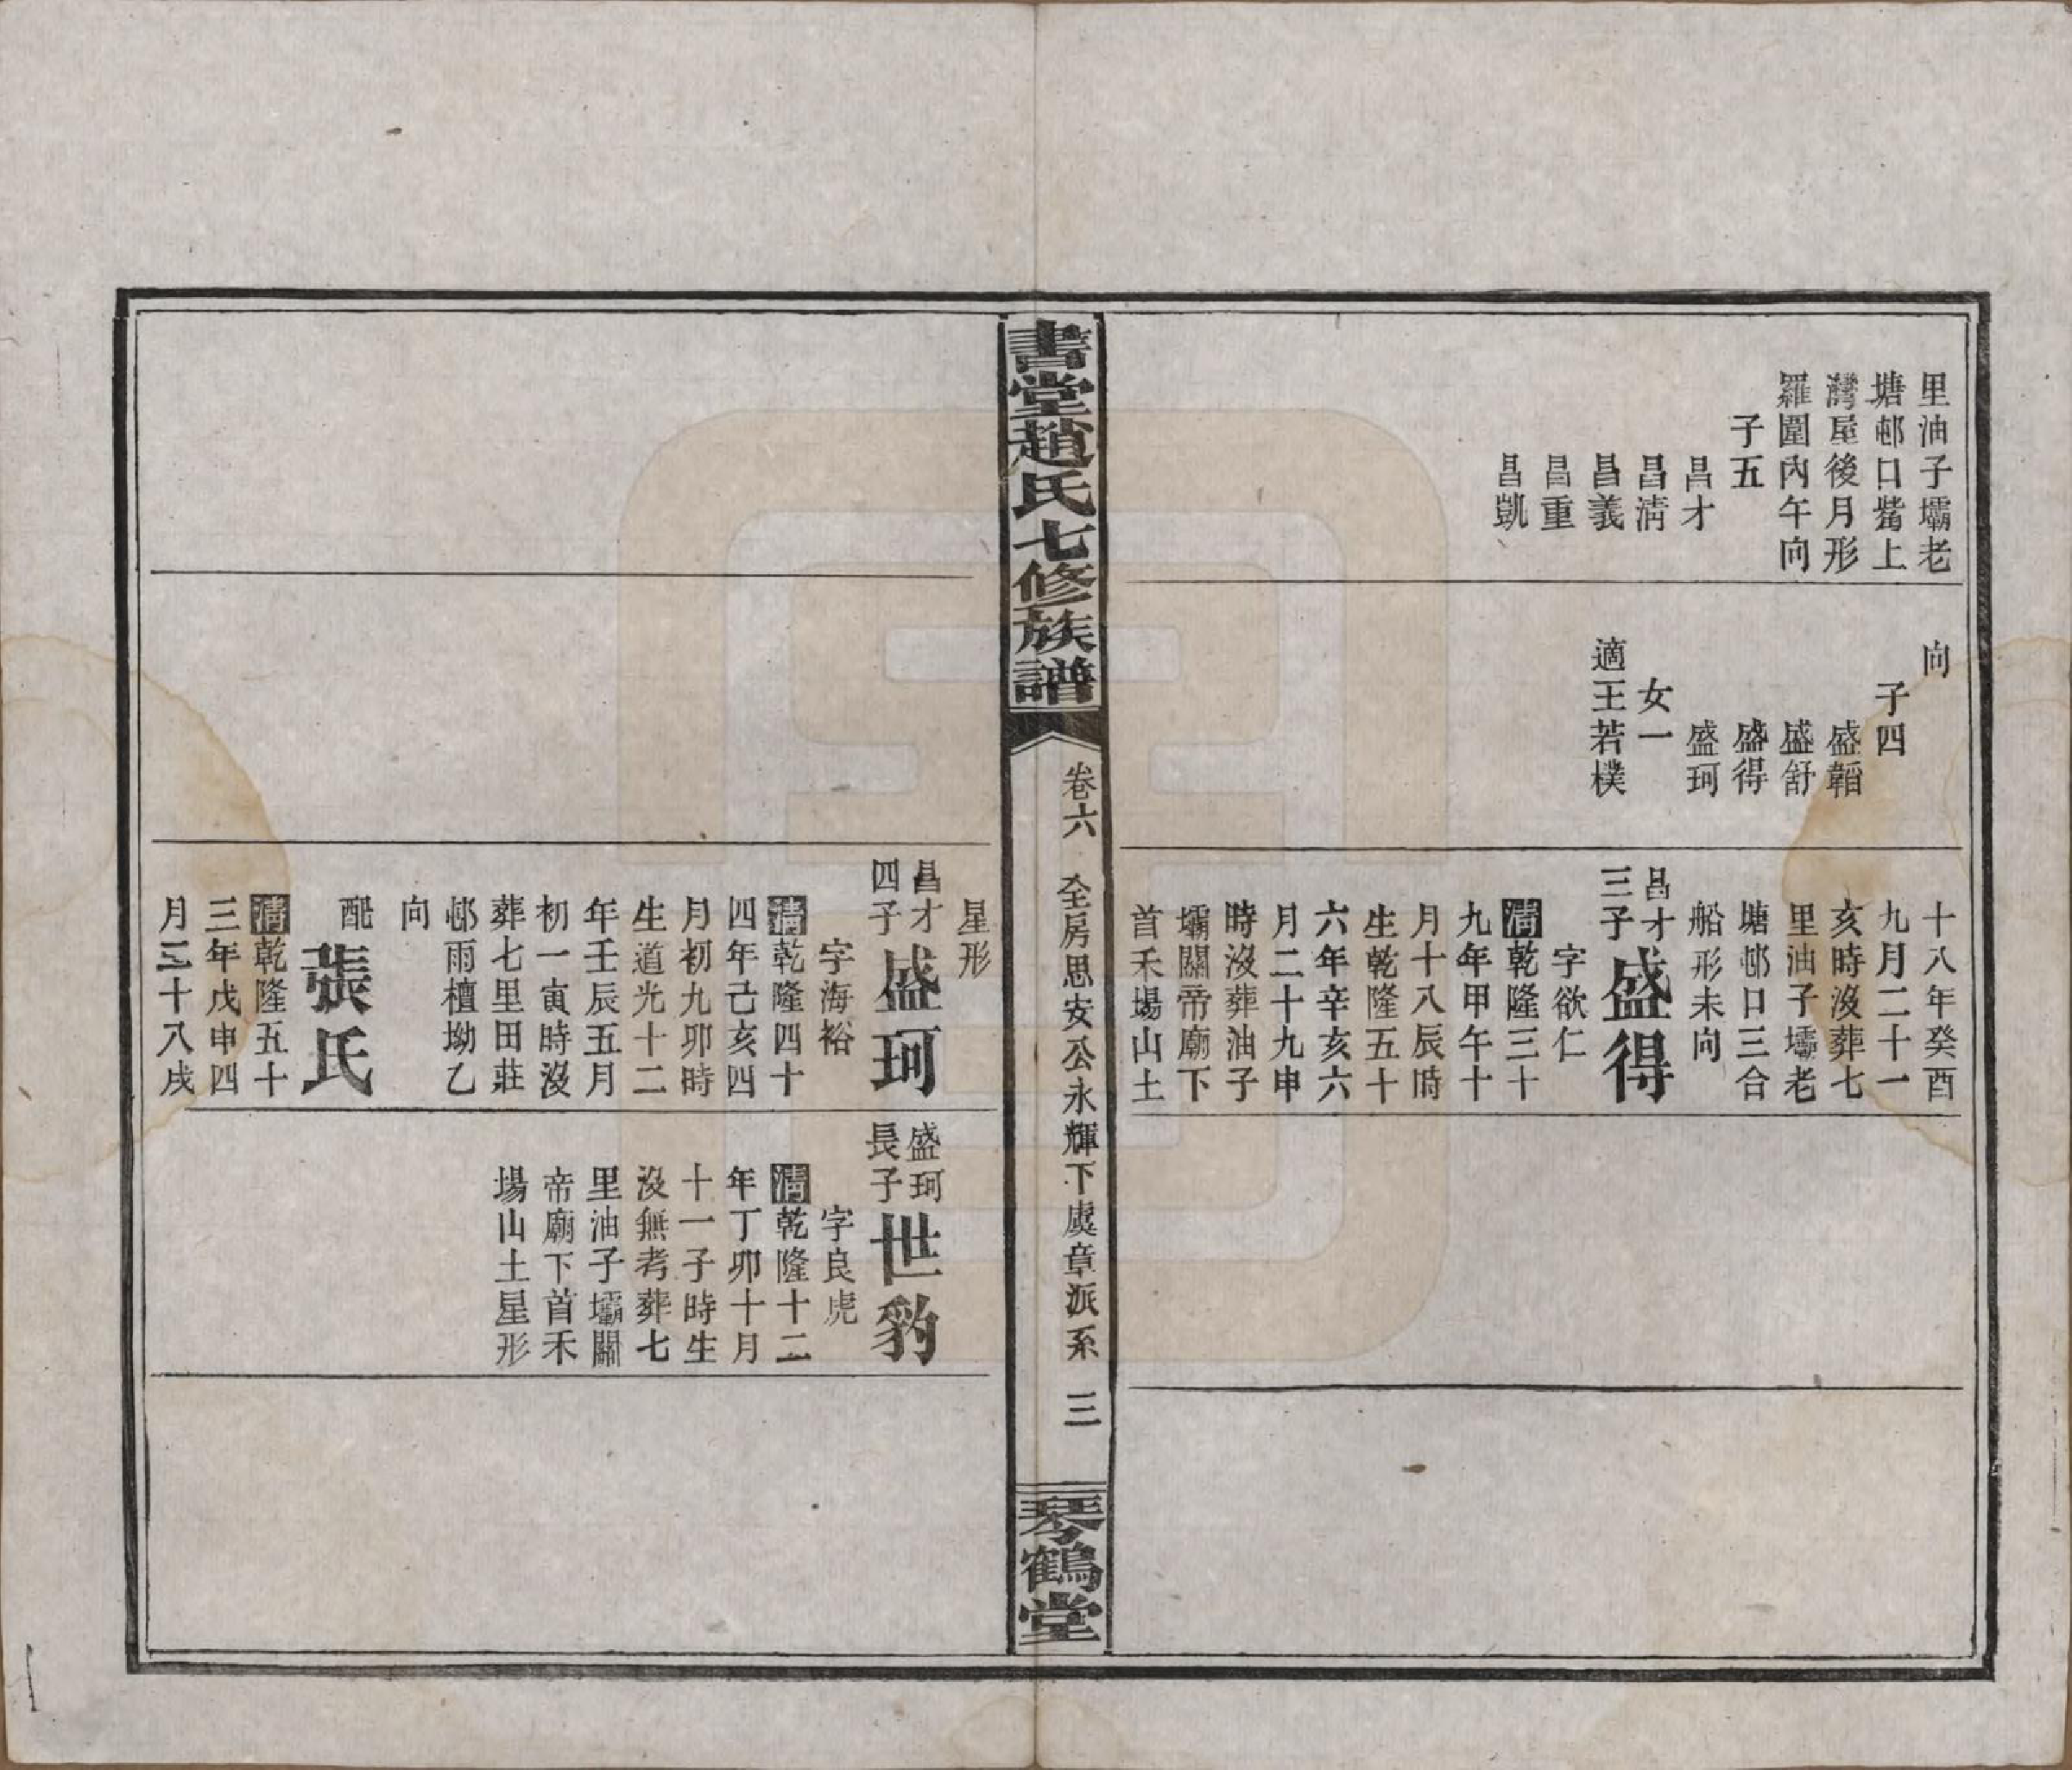 里油子壩老
塘邨口嘴上
灣屋後月形
羅圍內午向
子五
昌才
昌淸
昌義
昌重
昌凱
向
子四
盛韜
盛舒
盛得
盛珂
女一
適王若樸
十八年癸酉
九月二十一
亥時沒葬七
里油子壩老
塘邨口三合
船形未向
昌才
三子
盛得
字欲仁
淸乾隆三十
九年甲午十
月十八辰時
生乾隆五十
六年辛亥六
月二十九申
時沒葬油子
壩關帝廟下
首禾場山土
書堂趙氏七修族譜
卷六
全房思安公永輝下虞章派系
三
琴鶴堂
星形
昌才
四子
盛珂
字海裕
淸乾隆四十
四年己亥四
月初九卯時
生道光十二
年壬辰五月
初一寅時沒
葬七里田莊
邨雨檀坳乙
向
配
張氏
淸乾隆五十
三年戊申四
月二十八戌
盛珂
長子
世豹
字良虎
淸乾隆十二
年丁卯十月
十一子時生
沒無考葬七
里油子壩關
帝廟下首禾
場山土星形